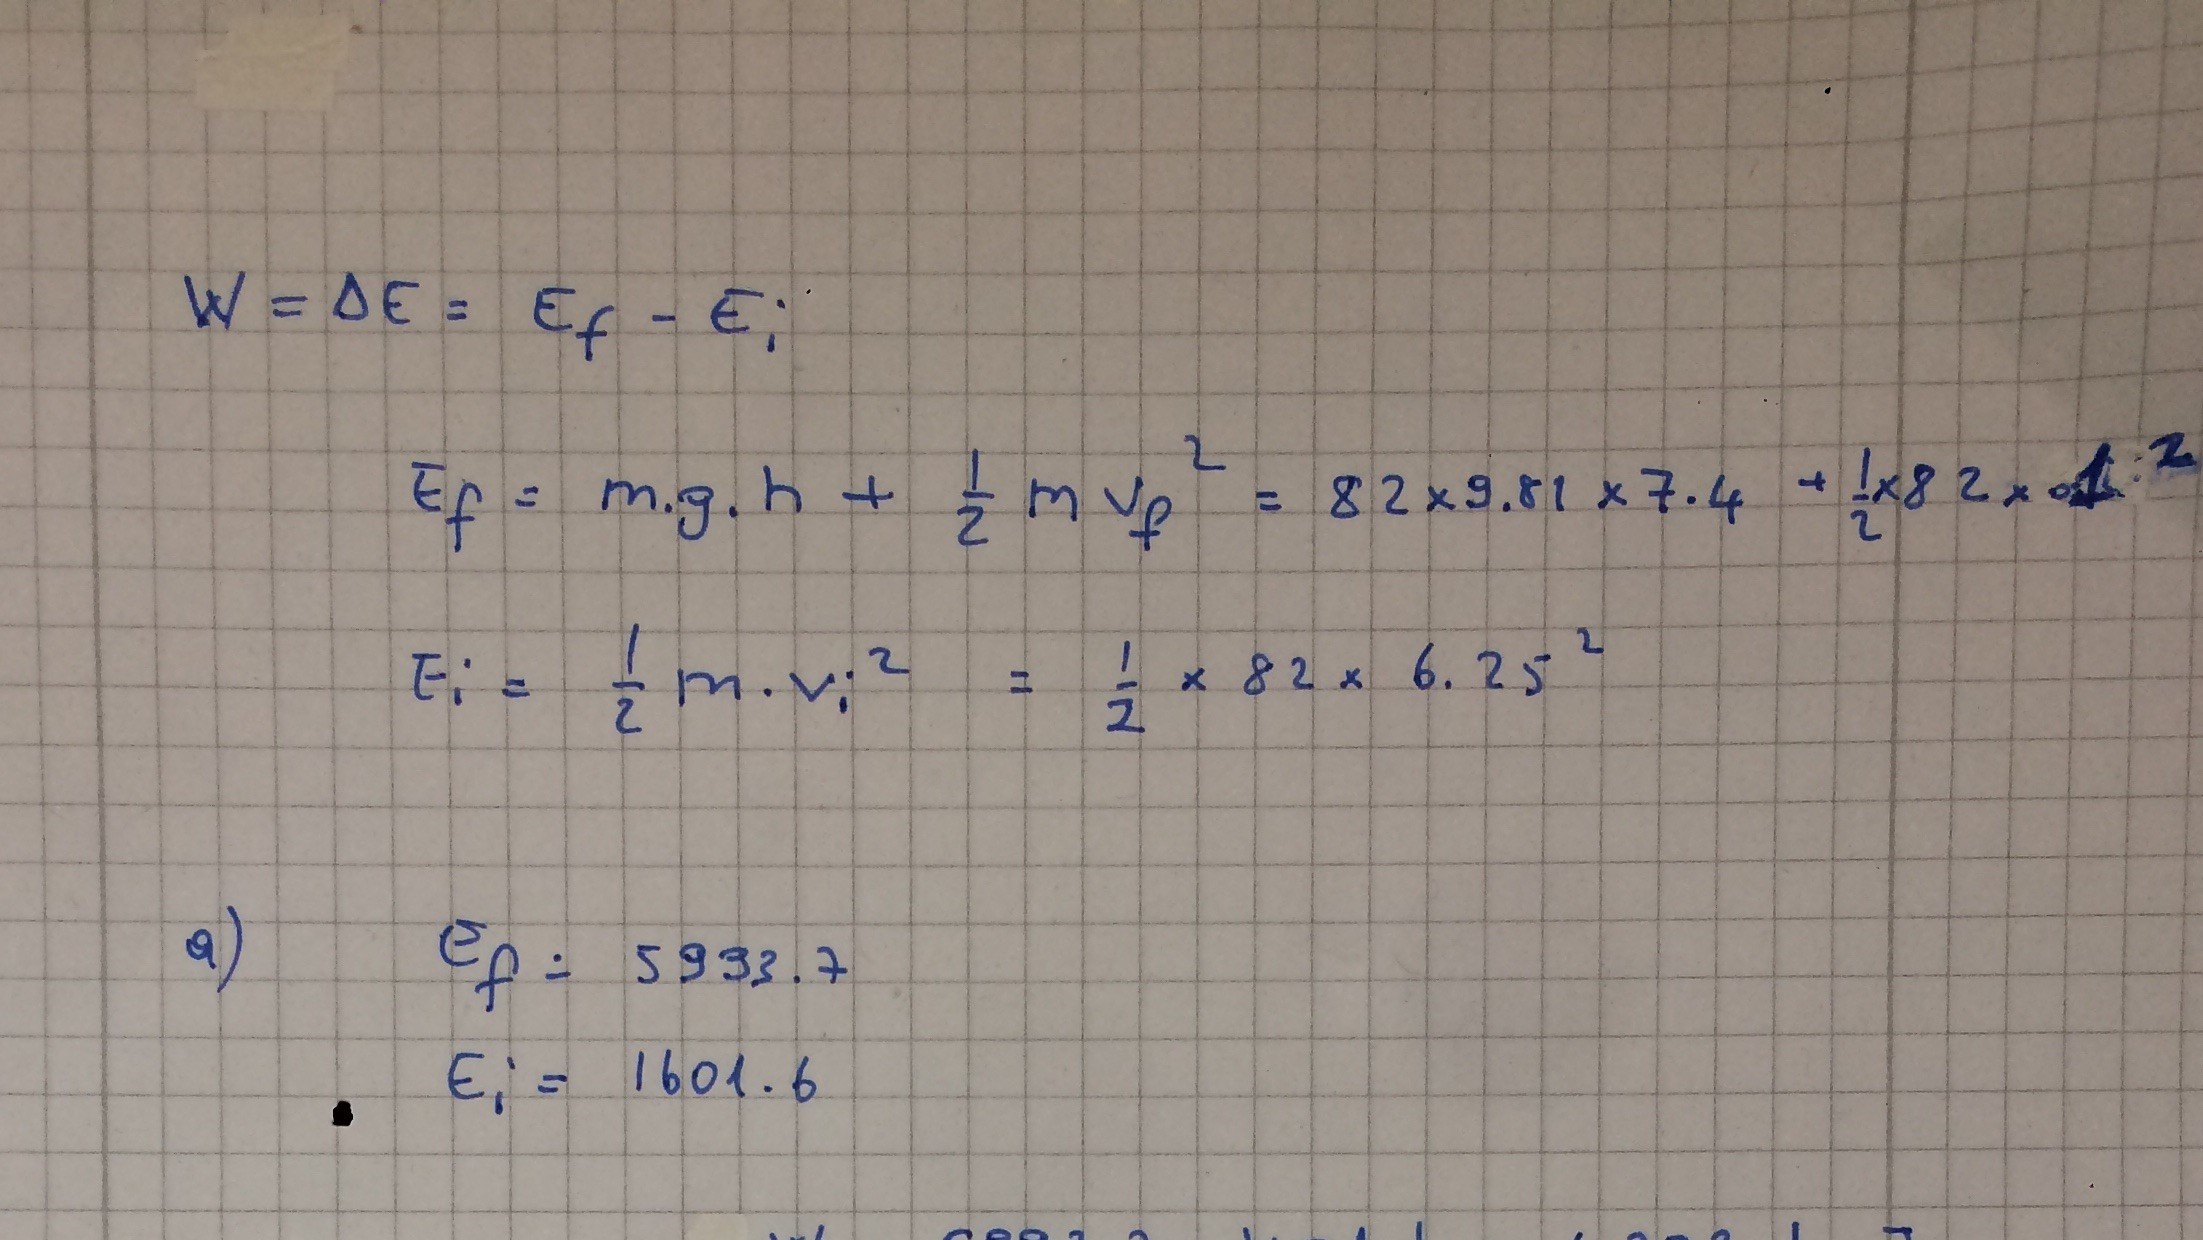 W = ΔE = Ef - Ei
Ef = m.g.h + 1/2 m vf² = 82 x 9.81 x 7.4 + 1/2 x 82 x 1²
Ei = 1/2 m . vi² = 1/2 x 82 x 6.25²
a) Ef = 5993.7
Ei = 1601.6